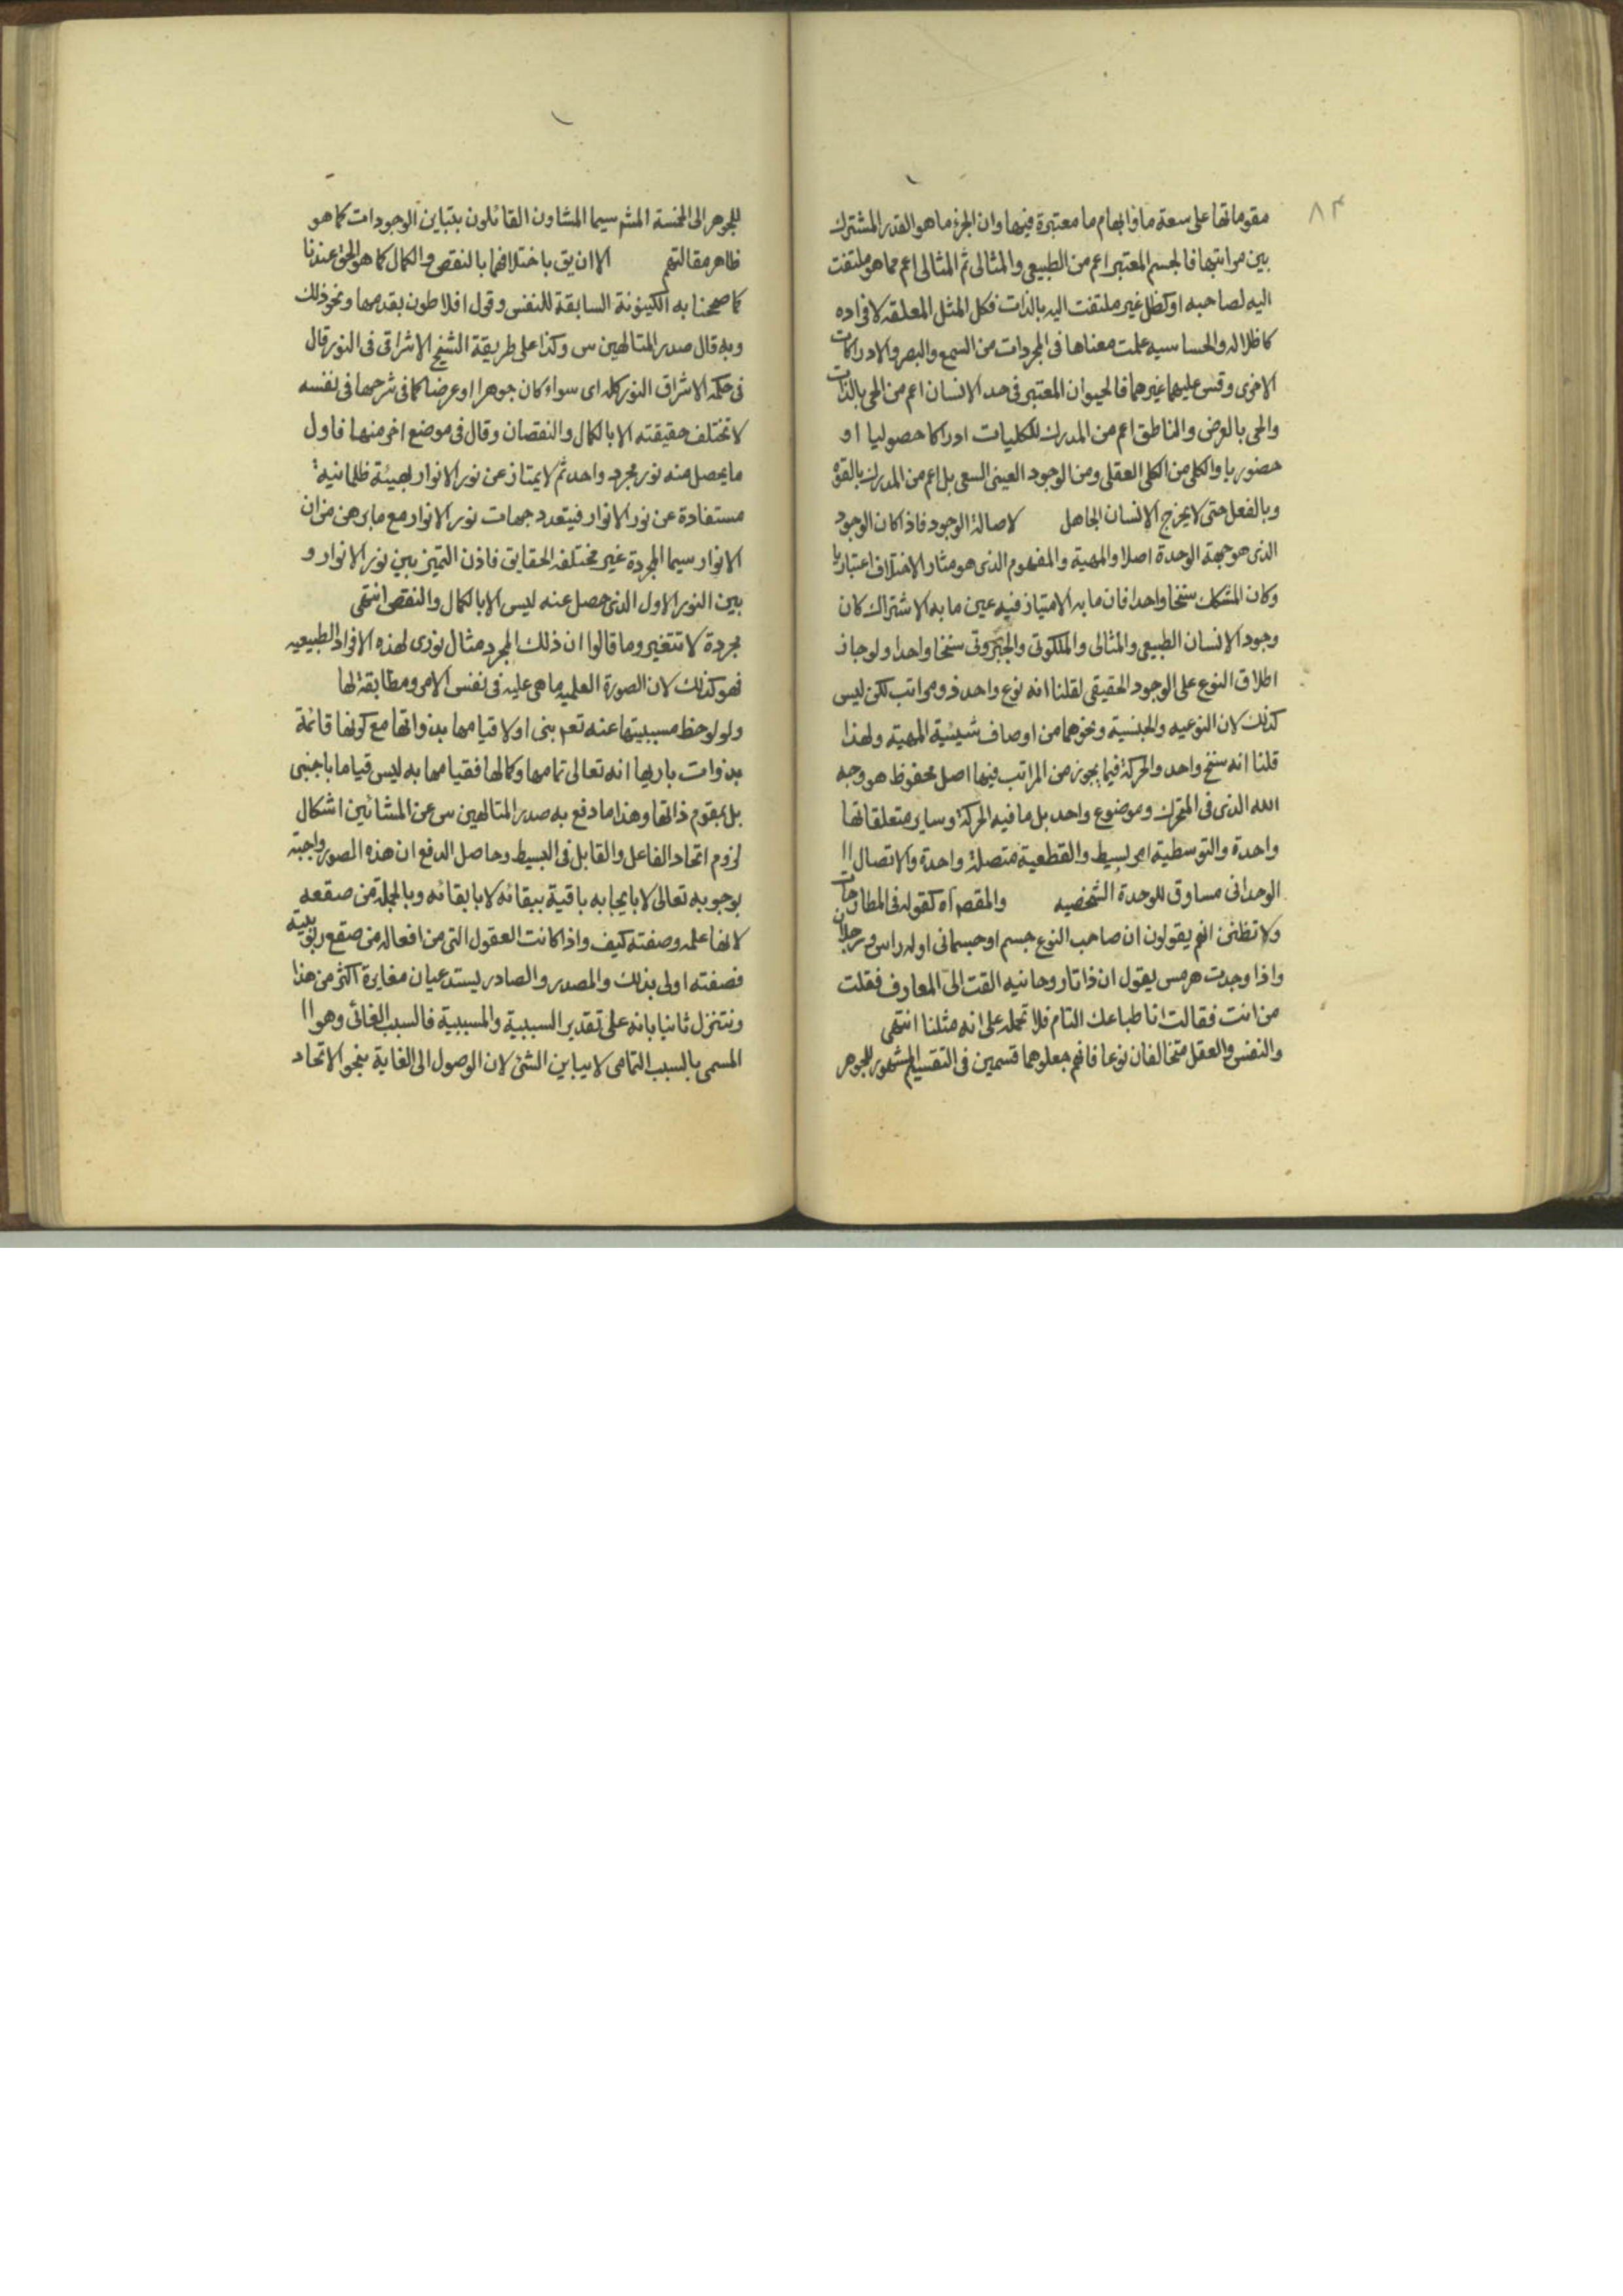 ٨٣
مقوماتها على سعة ما وابهام ما معتبرة فيها وان الجزء ما هو القدر المشترك
بين مراتبها فالجسم المعتبر اعم من الطبيعى والمثالى ثم المثالى اعم مما هو ملتفت
اليه لصاحبه او كظل غير ملتفت اليه بالذات فكل المثل المعلقه لافراده
كاظلاله والحساسيه علمت معناها فى المجردات من السمع والبصر والادراكات
الاخرى وقس عليهما غيرهما فالحيوان المعتبر فى حد الانسان اعم من الحى بالذات
والحى بالعرض والناطق اعم من المدرك للكليات ادراكا حصوليا او
حضوريا والكلى من الكلى العقلى ومن الوجود العينى السعى بل اعم من المدرك بالقوة
وبالفعل حتى لا يخرج الانسان الجاهل لاصالة الوجود فاذا كان الوجود
الذى هو جهة الوحدة اصلا والمهية والمفهوم الذى هو مثار الاختلاف اعتباريا
وكان المشكك سنخا واحدا فان ما به الامتياز فيه عين ما به الاشتراك كان
وجود الانسان الطبيعى والمثالى والملكوتى والجبروتى سنخا واحدا ولو جاز
اطلاق النوع على الوجود الحقيقى لقلنا انه نوع واحد ذو مراتب لكن ليس
كذلك لان النوعيه والجنسية ونحوهما من اوصاف شيئية المهية ولهذا
قلنا انه سنخ واحد والحركة فيما يجوز من المراتب فيها اصل محفوظ هو وجه
الله الذى فى المتحرك وموضوع واحد بل ما فيه الحركة وساير متعلقاتها
واحدة والتوسطية امر بسيط والقطعية متصلة واحدة والاتصال اا
الوحدانى مساوق للوحدة الشخصيه والمقصم آه كقوله فى المطارحات
ولا تظنن انهم يقولون ان صاحب النوع جسم او جسمانى او له راس ورجلان
واذا وجدت هرمس يقول ان ذاتا روحانيه القت الىّ المعارف فقلت
من انت فقالت انا طباعك التام فلا تحمله على انه مثلنا انتهى
والنفس والعقل متخالفان نوعا فانهم جعلوهما قسمين فى التقسيم المشهور للجوهر
للجوهر الى الخمسة المشم سيما المشاون القائلون بتباين الوجودات كما هو
ظاهر مقالتهم الا ان يق باختلافهما بالنقص والكمال كما هو الحق عندنا
كما صححنا به الكينونة السابقة للنفس وقول افلاطون بقدمها ونحو ذلك
وبه قال صدر المتالهين س وكذا على طريقة الشيخ الاشراقى فى النور قال
فى حكمة الاشراق النور كله اى سواء كان جوهرا او عرضا كما فى شرحها فى نفسه
لا تختلف حقيقته الا بالكمال والنقصان وقال فى موضع اخر منها فاول
ما يحصل منه نور مجرد واحد ثم لا يمتاز عن نور الانوار بهيئة ظلمانية
مستفادة عن نور الانوار فيتعدد جهات نور الانوار مع ما برهن من ان
الانوار سيما المجردة غير مختلفة الحقايق فاذن التميز بين نور الانوار و
بين النور الاول الذى حصل عنه ليس الا بالكمال والنقص انتهى
مجردة لا تتغير وما قالوا ان ذلك المجرد مثال نورى لهذه الافراد الطبيعيه
فهو كذلك لان الصورة العلميه ما هى عليه فى نفس الامر ومطابقة لها
ولو لوحظ مسببيتها عنه تعم بنى اولا قيامها بذواتها مع كونها قائمة
بذوات باريها انه تعالى تمامها وكمالها فقيامها به ليس قياما باجنبى
بل بمقوم ذاتها وهذا ما دفع به صدر المتالهين س عن المشائين اشكال
لزوم اتحاد الفاعل والقابل فى البسيط وحاصل الدفع ان هذه الصور واجبة
بوجوبه تعالى لا بايجابه باقية ببقائه لا بابقائه وبالجملة من صقعه
لانها علمه وصفته كيف واذا كانت العقول التى من افعاله من صقع ربوبيته
فصفته اولى بذلك والمصدر والصادر يستدعيان مغايرة اكثر من هذا
ونتنزل ثانيا بانه على تقدير السببية والمسببية فالسبب الغائى وهو اا
المسمى بالسبب التمامى لا يباين الشئ لان الوصول الى الغاية بنحو الاتحاد